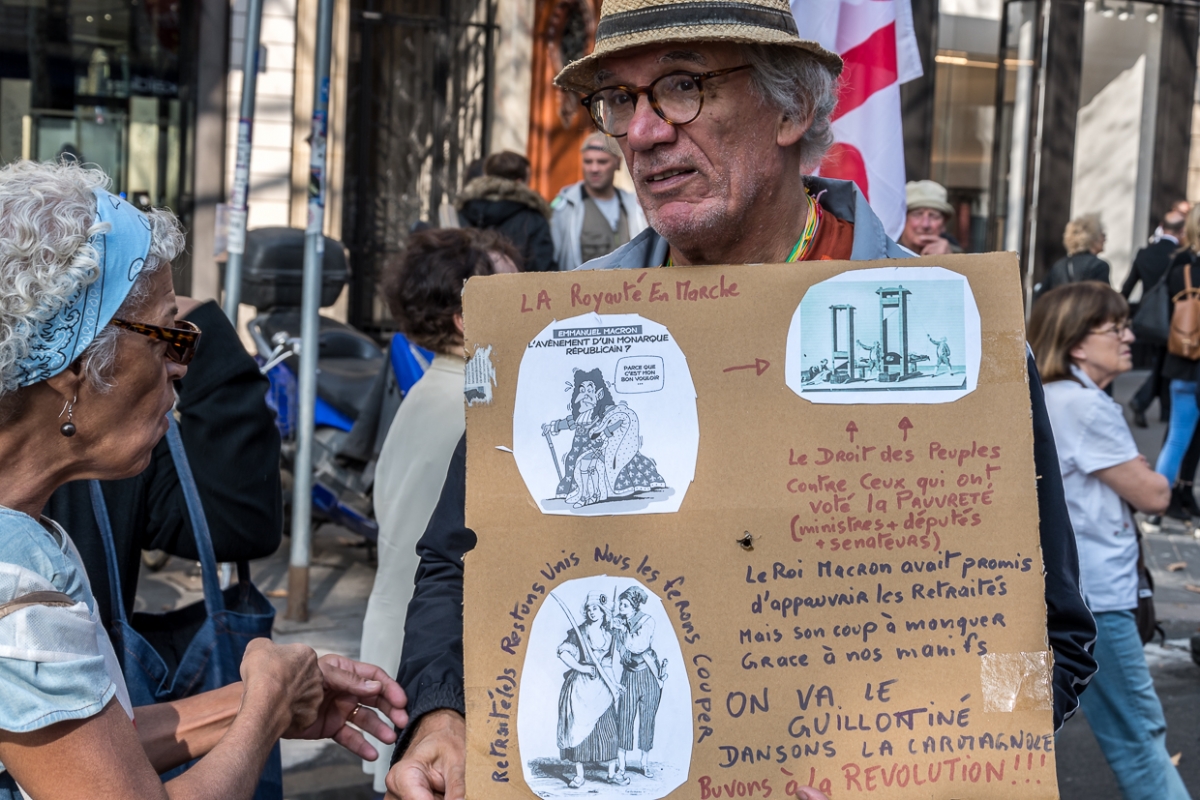 LA Royauté En Marche
EMMANUEL MACRON
L'AVÈNEMENT D'UN MONARQUE
RÉPUBLICAIN ?
PARCE QUE
C'EST MON
BON VOULOIR
Le Droit des Peuples
contre Ceux qui ont
voté la PAUVRETÉ
(ministres + députés
+ senateurs)
Retraité(e)s Restons Unis Nous les ferons Couper
Le Roi Macron avait promis
d'appauvrir les Retraités
Mais son coup à manquer
Grace à nos manifs
ON VA LE
GUILLOTTINÉ
DANSONS LA CARMAGNOLE
Buvons à la REVOLUTION!!!